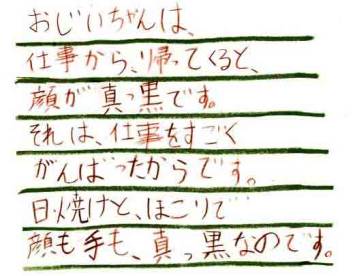 おじいちゃんは、
仕事から、帰ってくると、
顔が真っ黒です。
それは、仕事をすごく
がんばったからです。
日焼けと、ほこりで
顔も手も、真っ黒なのです。